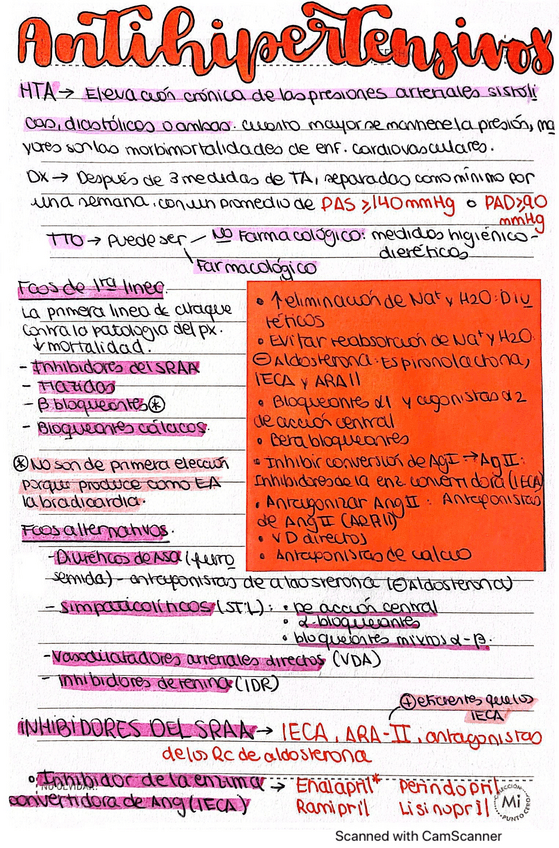 Antihipertensivos
HTA → Elevación crónica de las presiones arteriales sistóli
cas, diastólicas o ambas. cuanto mayor se mantiene la presión, ma
yores son las morbimortalidades de enf. cardiovasculares.
DX → Después de 3 medidas de TA, separadas como mínimo por
una semana. con un promedio de PAS ≥140mmHg o PAD≥90
mmHg
TTO → Puede ser - No Farmacológico: medidas higiénico-
dieréticos
\ Farmacológico
Fcos de 1ra linea.
La primera linea de ataque
contra la patología del px.
↓ mortalidad.
- Inhibidores del SRAA
- Tiazidas
- β bloqueantes ⊛
- Bloqueantes cálcicos.
⊛ No son de primera elección
porque produce como EA
la bradicardia.
Fcos alternativos.
• ↑ eliminación de Na⁺ y H2O: Diu
réticos
• Evitar reabsorción de Na⁺ y H2O.
⊖ Aldosterona: Espironolactona,
IECA y ARAII
• Bloqueantes α1 y agonistas α2
de acción central
• Beta bloqueantes
• Inhibir conversión de AgI → Ag II:
Inhibidores de la enz. convertidora (IECA)
• Antagonizar Ang II: Antagonistas
de Ang II (ARAII)
• VD directos
• Antagonistas de calcio
- Diuréticos de Asa (furo
semida) - antagonistas de aldosterona (⊖Aldosterona)
- Simpaticolíticos (STL): • De acción central
• α bloqueantes
• bloqueantes mixtos α-β.
- Vasodilatadores arteriales directos (VDA)
- Inhibidores de renina (IDR)
⊕ eficientes que los
IECA
INHIBIDORES DEL SRAA → IECA, ARA-II, antagonistas
de los Rc de aldosterona
• Inhibidor de la enzima
convertidora de Ang (IECA) → Enalapril* Perindopril
Ramipril Lisinopril
NO OLVIDAR:
COLECCIÓN
Mi
PUNTO CERO
Scanned with CamScanner